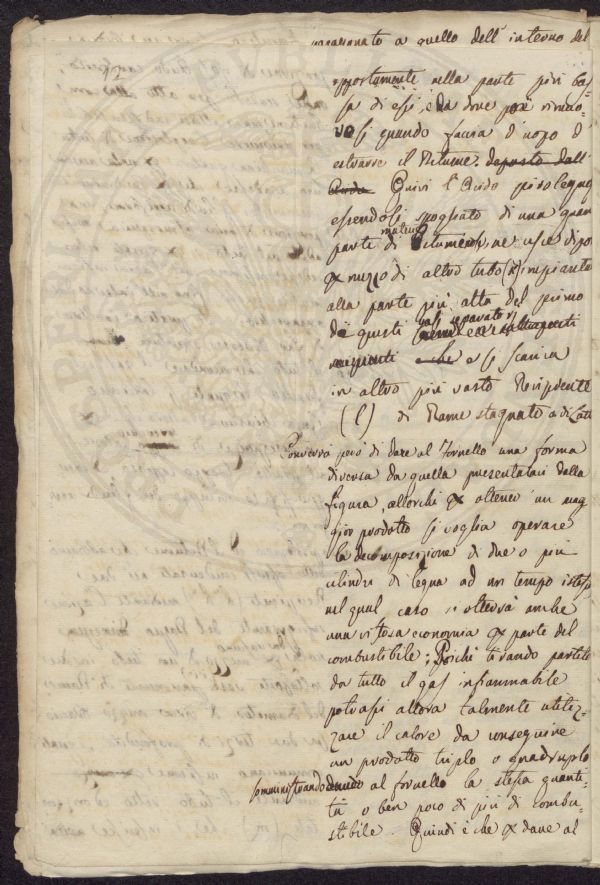 a quello dell' interno del
nella parte più bas-
sa di essi, e da dove poi rinuo-
vasi quando faccia d'uopo d'
estrarre il Bitume. deposto dall'
Acido Quivi l'Acido pirolegnoso
essendosi spogliato di una gran
parte di materia Bituminosa, ne esce dipoi
per mezzo di altro tubo (K) impiantato
alla parte più alta del primo
di questi vasi separatori
recipienti e che e si scarica
in altro più vasto Recipiente
(l) di Rame stagnato o di Latta
Converrà però di dare al Fornello una forma
diversa da quella presentataci dalla
figura, allorchè per ottener un mag
gior prodotto si voglia operare
la decomposizione di due o più
cilindri di legna ad un tempo istesso
nel qual caso si otterrà anche
una vistosa economia per parte del
combustibile; Poichè tirando partito
da tutto il gas infiammabile
potrassi allora talmente utiliz-
zare il calore da conseguire
un prodotto triplo o quadruplo
somministrando al fornello la stessa quanti-
tà o ben poco di più di combu-
stibile. Quindi è che per dare al